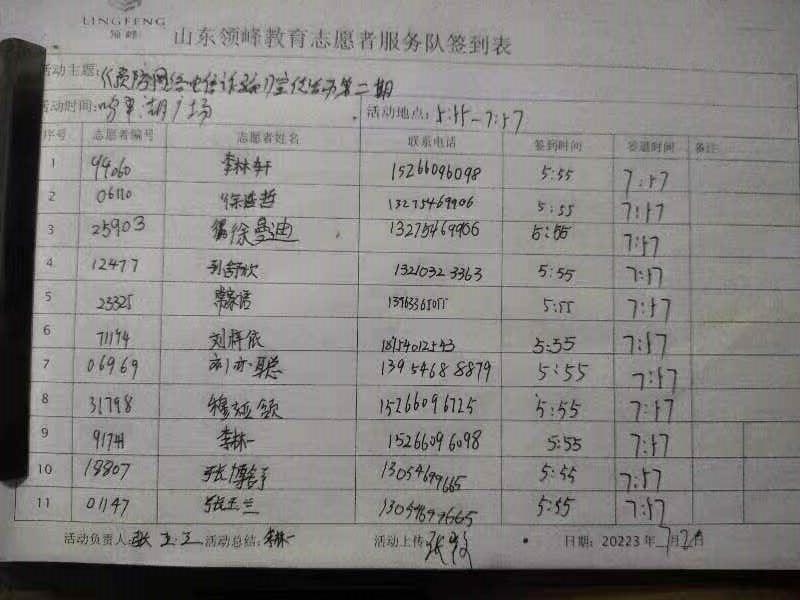 LINGFENG
领峰
山东领峰教育志愿者服务队签到表
活动主题:《预防网络电信诈骗》宣传活动第二期
活动时间: 湖广场 活动地点: 5:55-7:57
序号 志愿者编号 志愿者姓名 联系电话 签到时间 签退时间 备注
1 94060 李林轩 15266096098 5:55 7:57
2 徐哲 13275469906 5:55 7:57
3 25903 徐曼迪 13275469906 5:55 7:57
4 12477 刘舒欣 13210323363 5:55 7:57
5 23325 5:55 7:57
6 刘梓依 18954012543 5:55 7:57
7 06969 刘亦聪 13954688879 5:55 7:57
8 31798 颖 15266096725 5:55 7:57
9 李林一 15266096098 5:55 7:57
10 18807 张博 13054699665 5:55 7:57
11 01147 张玉兰 13054699665 5:55 7:57
活动负责人: 张玉兰 活动总结: 李林一 活动上传: 张 日期: 20223年7月2日